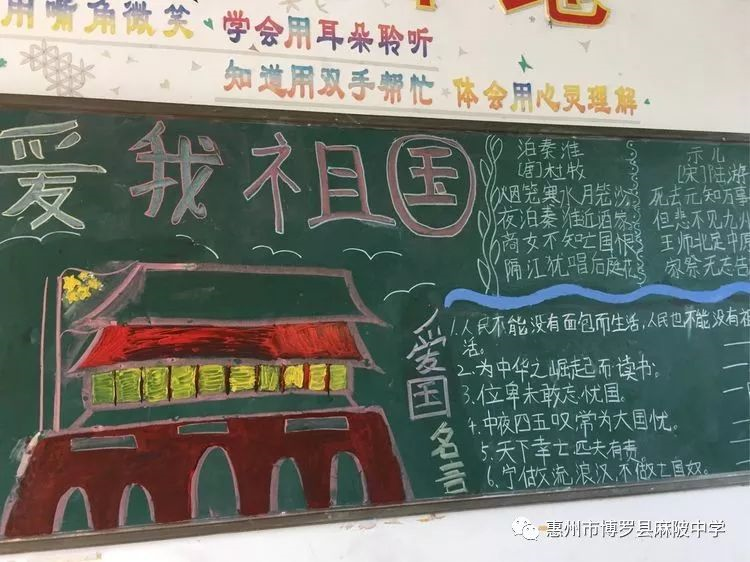 用嘴角微笑 学会用耳朵聆听
知道用双手帮忙 体会用心灵理解
爱我祖国
泊秦淮
[唐]杜牧
烟笼寒水月笼沙
夜泊秦淮近酒家
商女不知亡国恨
隔江犹唱后庭花
示儿
[宋]陆游
死去元知万事
但悲不见九州
王师北定中原
家祭无忘告
爱国名言
1.人民不能没有面包而生活,人民也不能没有祖
活。
2.为中华之崛起而读书。
3.位卑未敢忘忧国。
4.中夜四五叹,常为大国忧。
5.天下幸亡匹夫有责。
6.宁做流浪汉,不做亡国奴。
惠州市博罗县麻陂中学